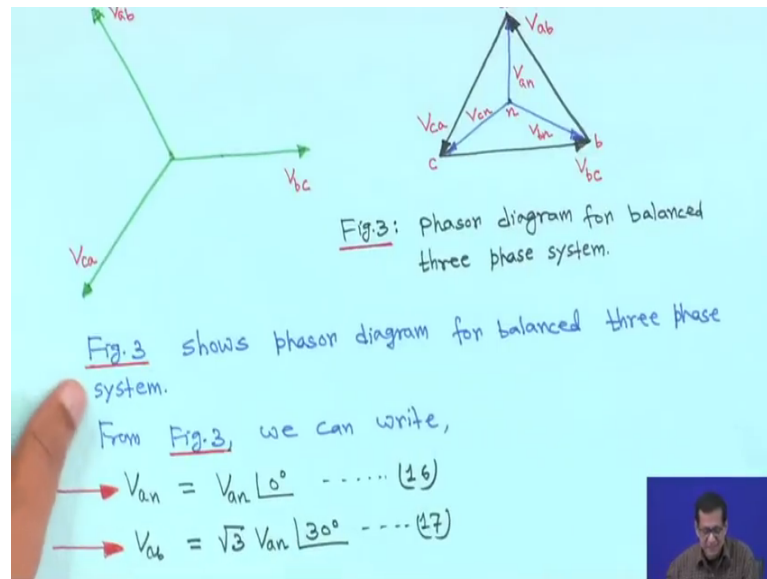 Vab
Vbc
Vca
Vab
Van
Vcn
n
Vbn
Vca
c
b
Vbc
Fig.3: phasor diagram for balanced
three phase system.
Fig. 3 shows phasor diagram for balanced three phase
system.
From Fig.3, we can write,
Van = Van∠0° ...... (16)
Vab = √3 Van∠30° ---- (17)